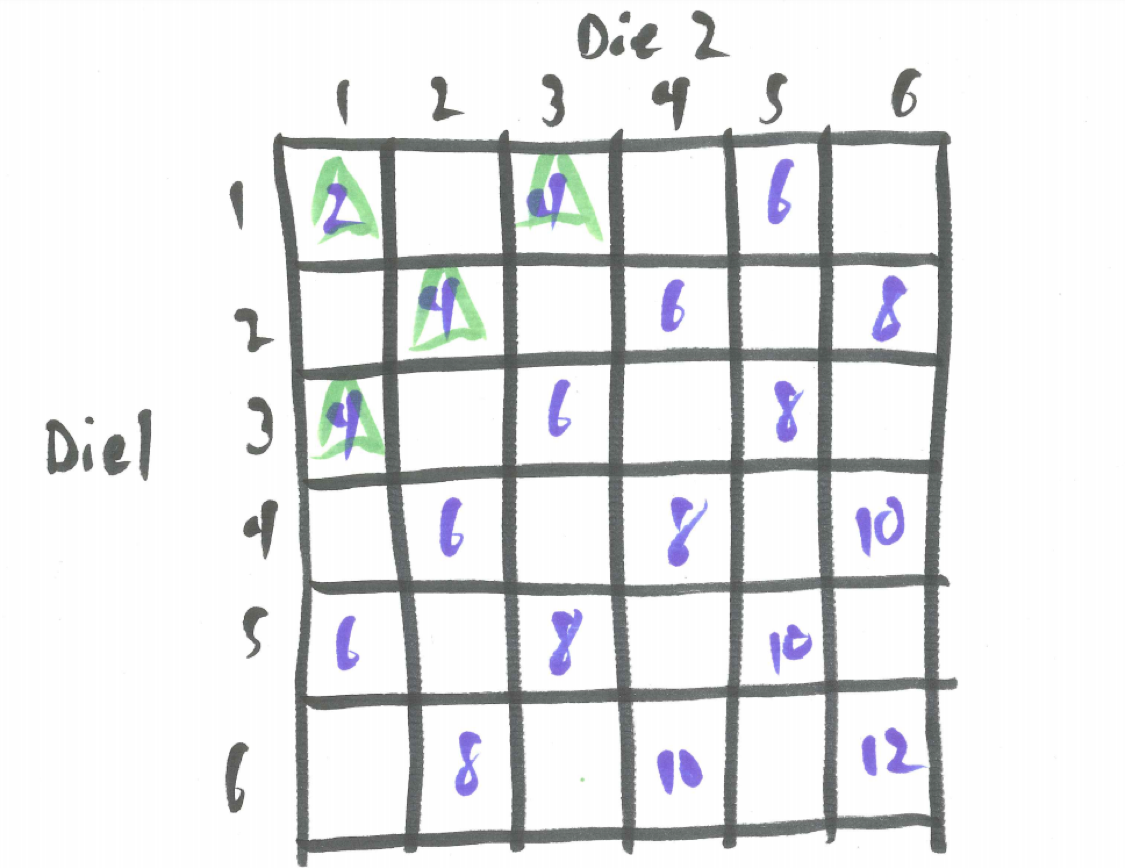 Die 2
1 2 3 4 5 6
1 2 4 6
2 4 6 8
3 4 6 8
Die1
4 6 8 10
5 6 8 10
6 8 10 12